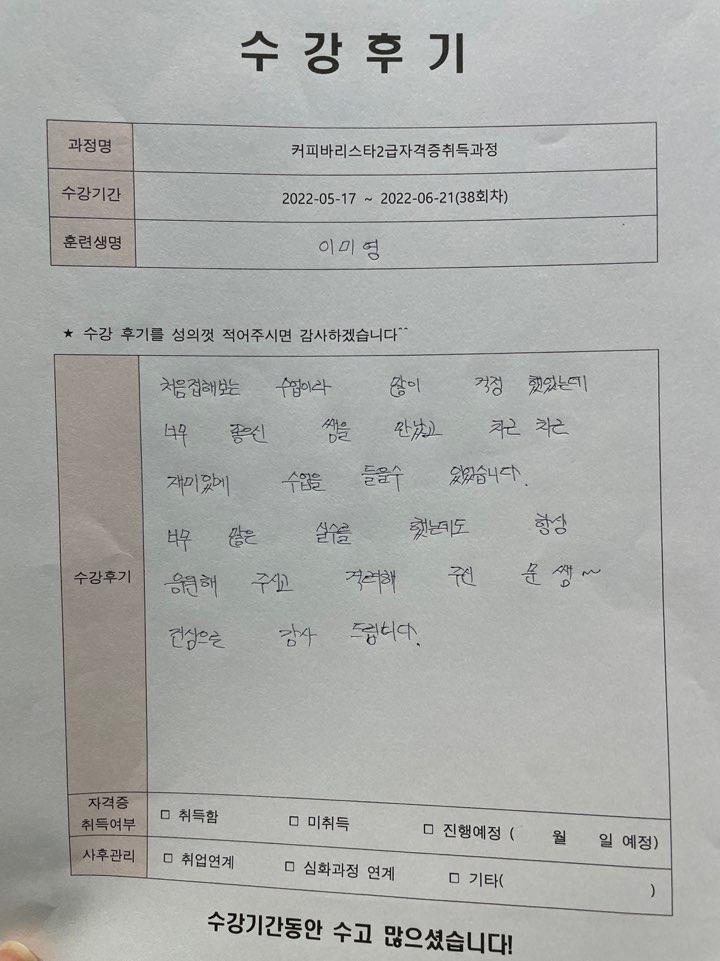 수강후기
과정명 커피바리스타2급자격증취득과정
수강기간 2022-05-17 ~ 2022-06-21(38회차)
훈련생명 이미영
★ 수강 후기를 성의껏 적어주시면 감사하겠습니다^^
처음접해보는 수업이라 많이 걱정 했었는데
너무 좋으신 쌤을 만났고 차근 차근
재미있게 수업을 들을수 있었습니다.
너무 많은 실수를 했는데도 항상
수강후기 응원해 주시고 격려해 주신 문 쌤~
진심으로 감사 드립니다.
자격증
취득여부 □ 취득함 □ 미취득 □ 진행예정 ( 월 일 예정)
사후관리 □ 취업연계 □ 심화과정 연계 □ 기타( )
수강기간동안 수고 많으셨습니다!